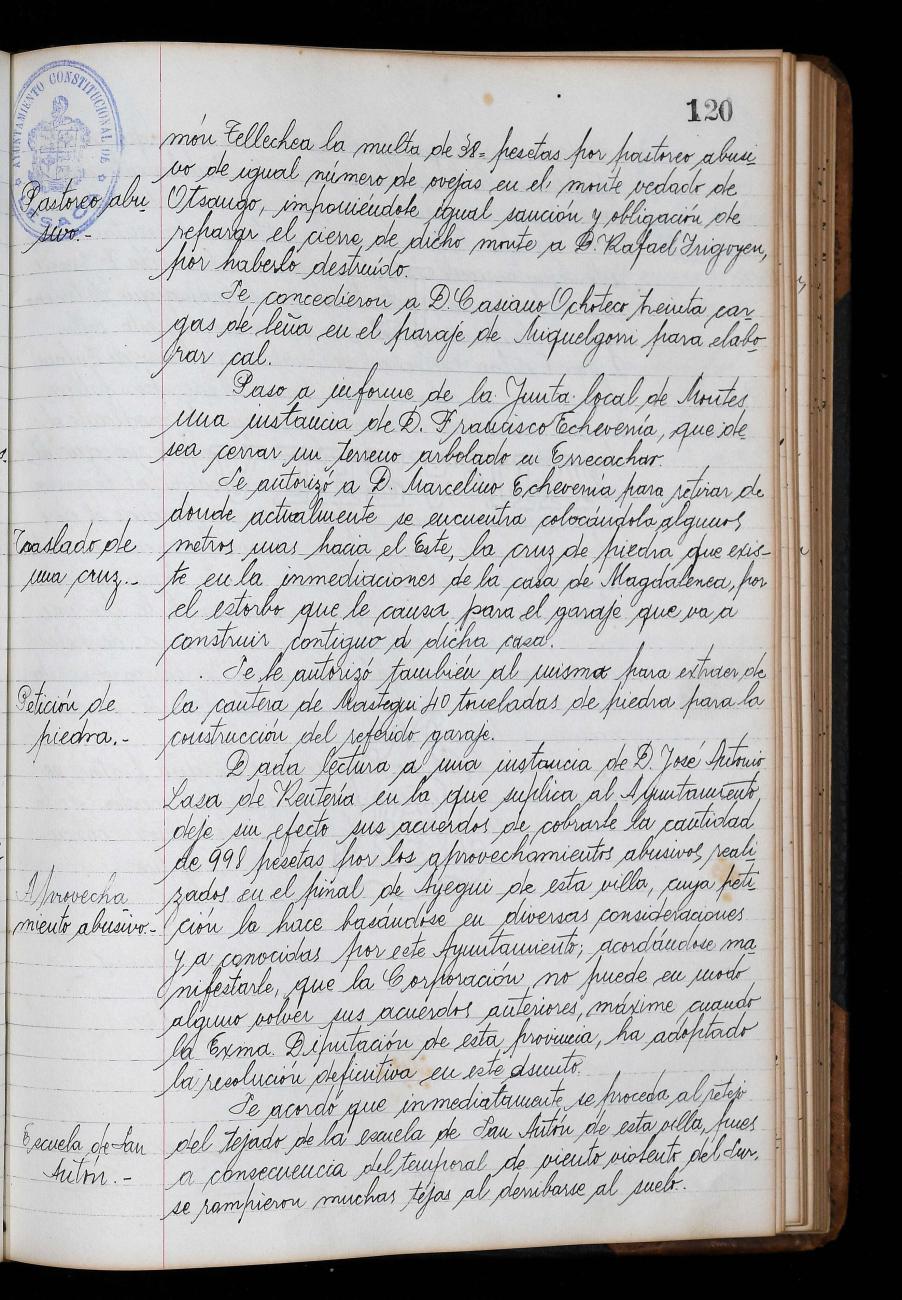 120
AYUNTAMIENTO CONSTITUCIONAL DE LESACA
món Tellechea la multa de 38= pesetas por pastoreo abusi-
vo de igual número de ovejas en el monte vedado de
Pastoreo abu-
sivo.-
Otsango, imponiéndole igual sanción y obligación de
reparar el cierre de dicho monte a D. Rafael Irigoyen,
por haberlo destruído.
Se concedieron a D. Casiano Ochoteco treinta car-
gas de leña en el paraje de Miquelgorri para elabo-
rar cal.
Paso a informe de la Junta local de Montes
una instancia de D. Francisco Echeverría, que de-
sea cerrar un terreno arbolado en Errecachar.
Se autorizó a D. Marcelino Echeverría para retirar de
donde actualmente se encuentra colocándola algunos
Traslado de
una cruz.-
metros mas hacia el Este, la cruz de piedra que exis-
te en la inmediaciones de la casa de Magdalenea, por
el estorbo que le causa para el garaje que va a
construir contiguo a dicha casa.
Se le autorizó también al mismo para extraer de
Petición de
piedra.-
la cantera de Mastegui 40 toneladas de piedra para la
construcción del referido garaje.
Dada lectura a una instancia de D. José Antonio
Lasa de Rentería en la que suplica al Ayuntamiento
deje sin efecto sus acuerdos de cobrarle la cantidad
de 998 pesetas por los aprovechamientos abusivos reali-
Aprovecha
miento abusivo.-
zados en el pinal de Ayegui de esta villa, cuya peti-
ción la hace basándose en diversas consideraciones
ya conocidas por este Ayuntamiento; acordándose ma-
nifestarle, que la Corporación no puede en modo
alguno volver sus acuerdos anteriores, máxime cuando
la Exma. Diputación de esta provincia, ha adoptado
la resolución definitiva en este asunto.
Se acordó que inmediatamente se proceda al retejo
Escuela de San
Antón.-
del tejado de la escuela de San Antón de esta villa, pues
a consecuencia del temporal de viento violento del Sur,
se rompieron muchas tejas al derribarse al suelo.